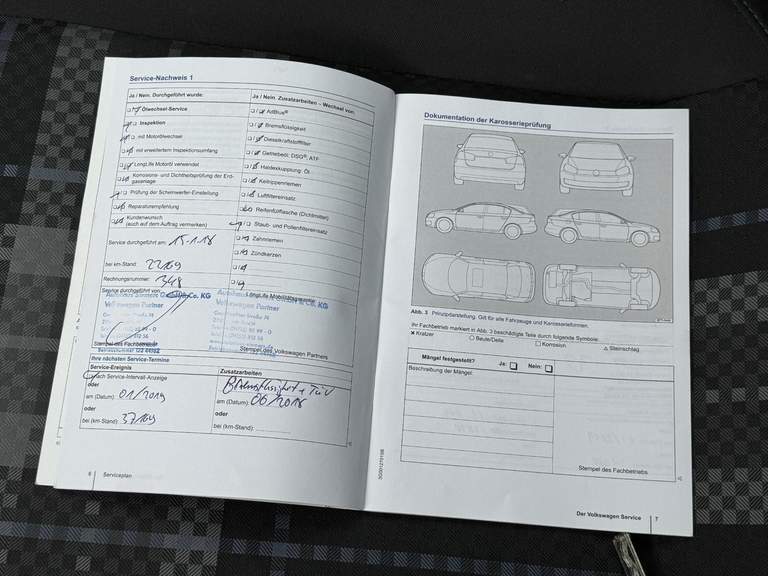 Service-Nachweis 1
Ja / Nein. Durchgeführt wurde:
Ölwechsel-Service
Inspektion
mit Motorölwechsel
mit erweitertem Inspektionsumfang
LongLife Motoröl verwendet
Korrosions- und Dichtheitsprüfung der Erd-
gasanlage
Prüfung der Scheinwerfer-Einstellung
Reparaturempfehlung
Kundenwunsch
(auch auf dem Auftrag vermerken)
Service durchgeführt am: 15.1.18
bei km-Stand: 22169
Rechnungsnummer: 348
Service durchgeführt von:
Co. KG
Volkswagen Partner
Stempel des Fachbetriebs
Ja / Nein. Zusatzarbeiten – Wechsel von:
AdBlue®
Bremsflüssigkeit
Dieselkraftstofffilter
Getriebeöl: DSG®, ATF
Haldexkupplung: Öl
Keilrippenriemen
Luftfiltereinsatz
Reifenfüllflasche (Dichtmittel)
Staub- und Pollenfiltereinsatz
Zahnriemen
Zündkerzen
LongLife Mobilitätsgarantie
Co. KG
Volkswagen Partner
Stempel des Volkswagen Partners
Ihre nächsten Service-Termine
Service-Ereignis
nach Service-Intervall-Anzeige
oder
am (Datum): 01/2019
oder
bei (km-Stand): 37169
Zusatzarbeiten
Bremsflüssigkeit + TÜV
am (Datum): 06/2018
oder
bei (km-Stand):
6 Serviceplan
Dokumentation der Karosserieprüfung
Abb. 3 Prinzipdarstellung: Gilt für alle Fahrzeuge und Karosserieformen.
Ihr Fachbetrieb markiert in Abb. 3 beschädigte Teile durch folgende Symbole:
× Kratzer ○ Beule/Delle □ Korrosion △ Steinschlag
Mängel festgestellt? Ja: Nein:
Beschreibung der Mängel:
Stempel des Fachbetriebs
Der Volkswagen Service 7